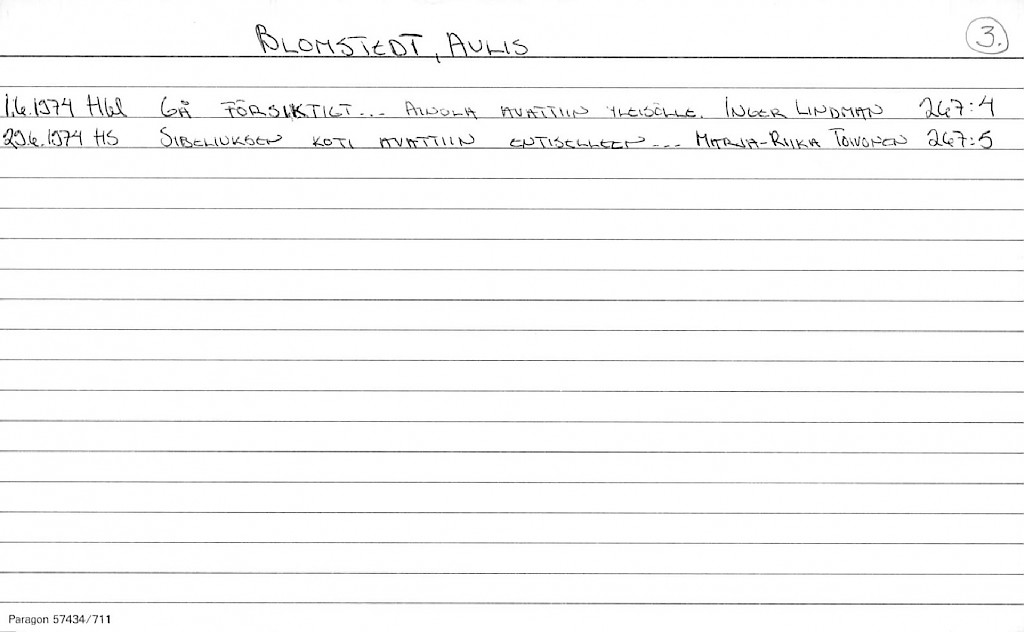 BLOMSTEDT, AULIS
3.
1.6.1974 Hbl GÅ FÖRSIKTIGT... AINOLA AVATTIIN YLEISÖLLE. INGER LINDMAN 267:4
29.6.1974 HS SIBELIUKSEN KOTI AVATTIIN ENTISELLEEN... MARJA-RIIKA TOIVONEN 267:5
Paragon 57434/711